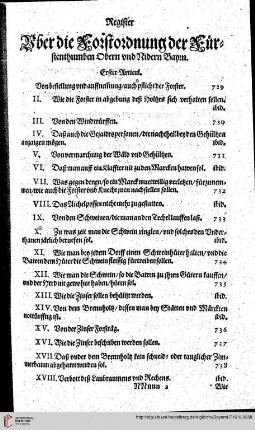 Register
Vber die Forstordnung der Für-
stenthumben Obern vnd Nidern Bayrn.
Erster Articul.
Von bestellung vnd auffnemung/ auch pflicht der Forster. 729
II. Wie die Forster in abgebung deß Holtzes sich verhalten sollen/
ibid.
III. Von den Windwürffen. 730
IV. Daß auch die
anzaigen mögen. ibid.
V. Von vermarchung der Wäld vnd Gehültzen. 731
VI. Daß man auff ein Klaffter nit zu den Marcken hawen sol. ibid.
VII. Was gegen denen/ so ein Marck mutwillig verletzen/ fürzunem-
men/ wie auch die Forster vnd Knecht zu nach sollen. 732
VIII. Das Aichelpossen nicht mehr zu gestatten. ibid.
IX. Von den Schweinen/ die man an den Techel lauffen last. 733
X. Zu was zeit man die Schwein ringlen/ vnd solches den Vnder-
thanen järlich beruefen sol. ibid.
XI. Wie man bey jedem Dorff einen Schweinhüter halten/ vnd die
Bawrn dem Hüter die Schwein fleissig fürtreiben sollen. ibid.
XII. Wie man die Schwein/ so die Bawrn zu jhren Gütern kauffen/
vnd der Herd nit gewohnt haben/ hüten sol. 735
XIII. Wie die Zinser sollen behültzt werden. ibid.
XIV. Von dem Brennholtz/ dessen man bey Stätten vnd Märckten
notturfftig ist. ibid.
XV. Von der Zinser Forsträg. 736
XVI. Wie die Zinser beschriben werden sollen. 737
XVII. Daß vnder dem Brennholtz kein schneid- oder tauglicher Zim-
merbaum abgehawt werden sol. ibid.
XVIII. Verbott deß Laubraumens vnd Rechens. ibid.
Wie